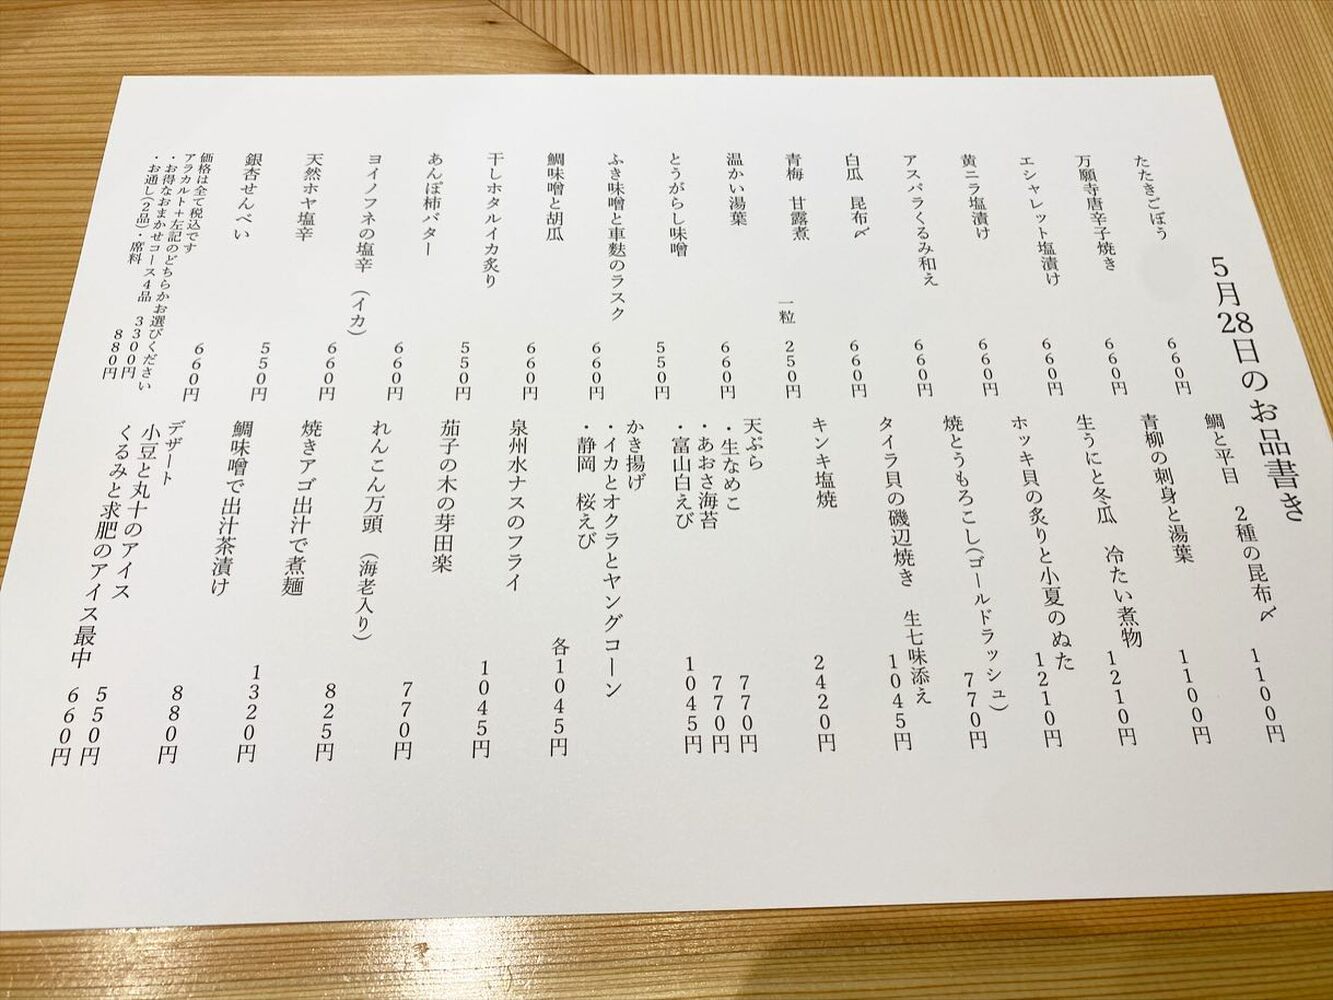 5月28日のお品書き
たたきごぼう 660円
万願寺唐辛子焼き 660円
エシャレット塩漬け 660円
黄ニラ塩漬け 660円
アスパラくるみ和え 660円
白瓜 昆布〆 660円
青梅 甘露煮 一粒 250円
温かい湯葉 660円
とうがらし味噌 550円
ふき味噌と車麩のラスク 660円
鯛味噌と胡瓜 660円
干しホタルイカ炙り 550円
あんぽ柿バター 660円
ヨイノフネの塩辛(イカ) 660円
天然ホヤ塩辛 550円
銀杏せんべい 660円
価格は全て税込です
アラカルト+左記のどちらかお選びください
・お得なおまかせコース4品 3300円
・お通し(2品)・席料 880円
鯛と平目 2種の昆布〆 1100円
青柳の刺身と湯葉 1100円
生うにと冬瓜 冷たい煮物 1210円
ホッキ貝の炙りと小夏のぬた 1210円
焼とうもろこし(ゴールドラッシュ) 770円
タイラ貝の磯辺焼き 生七味添え 1045円
キンキ塩焼 2420円
天ぷら
・生なめこ 770円
・あおさ海苔 770円
・富山白えび 1045円
かき揚げ
・イカとオクラとヤングコーン
・静岡 桜えび 各1045円
泉州水ナスのフライ 1045円
茄子の木の芽田楽 770円
れんこん万頭(海老入り) 825円
焼きアゴ出汁で煮麺 1320円
鯛味噌で出汁茶漬け 880円
デザート
小豆と丸十のアイス 550円
くるみと求肥のアイス最中 660円